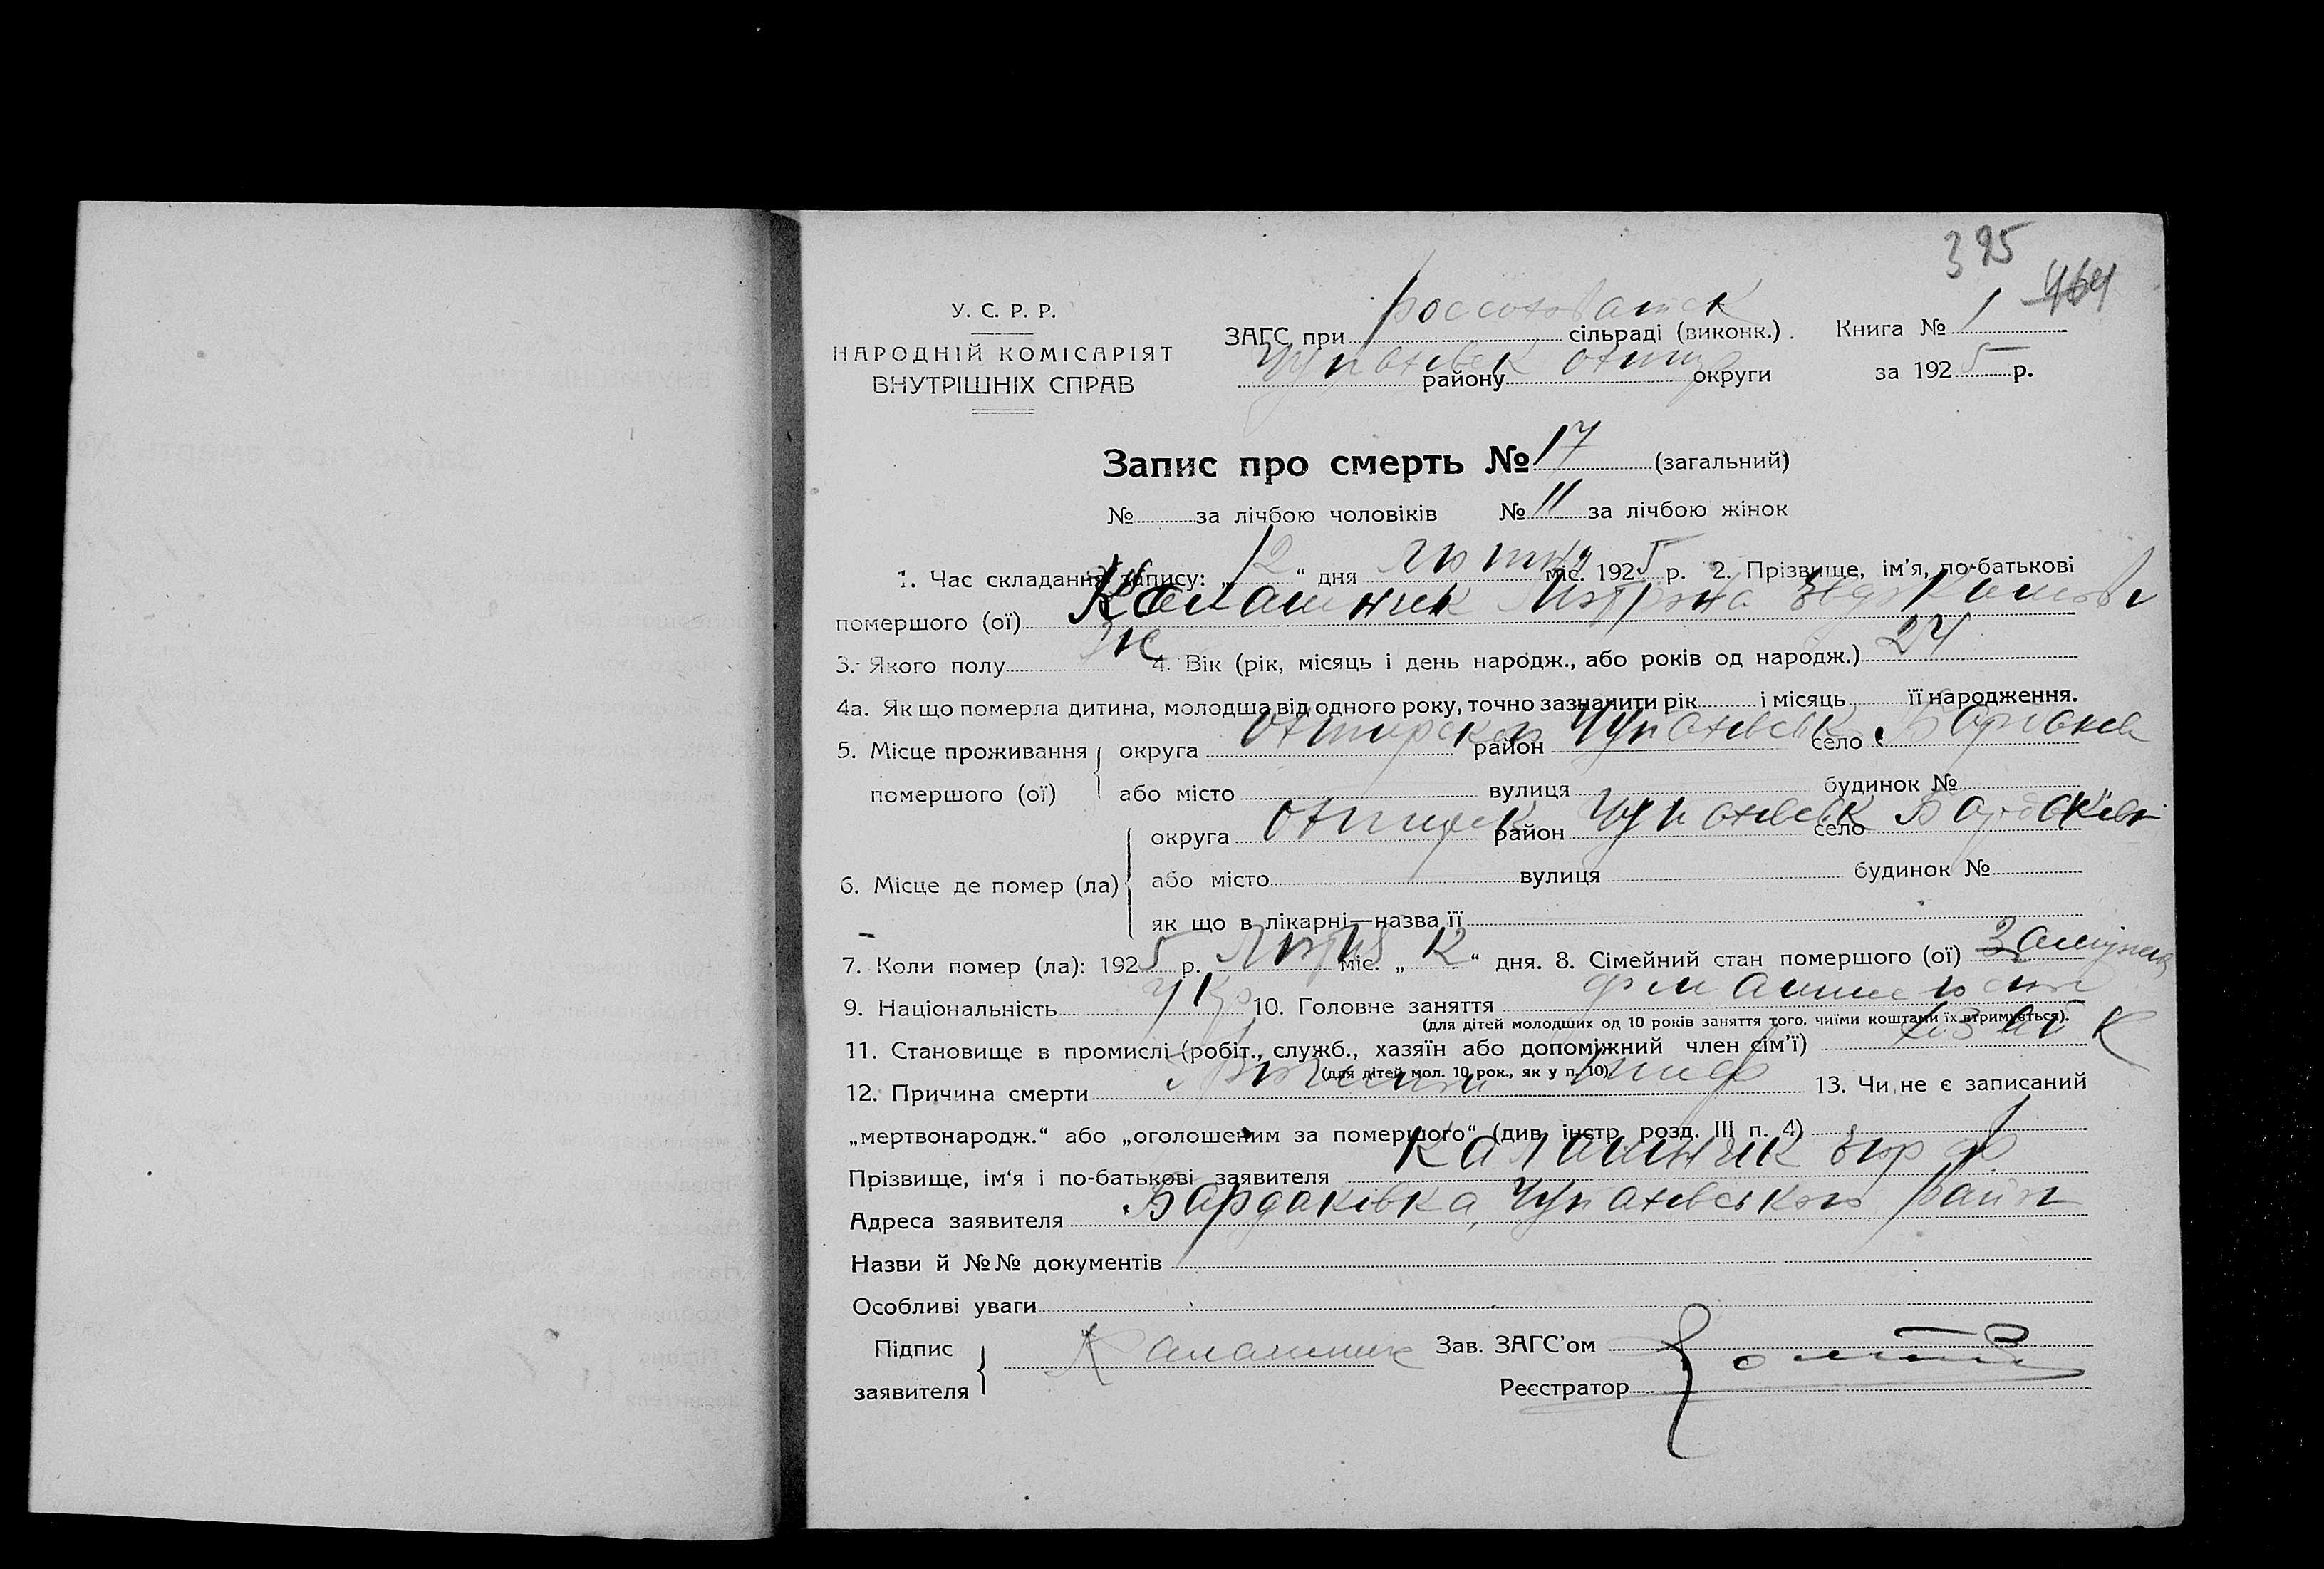 395
464
У. С. Р. Р.
НАРОДНІЙ КОМІСАРІЯТ
ВНУТРІШНІХ СПРАВ
ЗАГС при россоховатск сільраді (виконк.). Книга № 1
Чупахівськ району охтир округи за 1925 р.
Запис про смерть № 17 (загальний)
№ за лічбою чоловіків № 11 за лічбою жінок
1. Час складання запису: „12“ дня міс. 1925 р. 2. Прізвище, ім'я, по-батькові
помершого (ої) Калашник Мотрона
3. Якого полу ж 4. Вік (рік, місяць і день народж., або років од народж.) 24
4а. Як що померла дитина, молодша від одного року, точно зазначити рік і місяць її народження.
5. Місце проживання округа Охтирской район Чупахівськ село
помершого (ої) або місто вулиця будинок №
округа Охтирск район Чупахівськ село Бардаків
6. Місце де помер (ла) або місто вулиця будинок №
як що в лікарні—назва її
7. Коли помер (ла): 1925 р. міс. „12“ дня. 8. Сімейний стан помершого (ої) Замужня
9. Національність укр 10. Головне заняття
(для дітей молодших од 10 років заняття того, чиїми коштами їх втримується).
11. Становище в промислі (робіт., служб., хазяїн або допоміжний член сім'ї)
(для дітей мол. 10 рок., як у п. 10)
12. Причина смерти тиф 13. Чи не є записаний
„мертвонародж.“ або „оголошеним за помершого“ (див. інстр. розд. III п. 4)
Прізвище, ім'я і по-батькові заявителя Калашник
Адреса заявителя Бардаківка, Чупахівського район
Назви й №№ документів
Особливі уваги
Підпис
заявителя Калашник Зав. ЗАГС'ом
Реєстратор